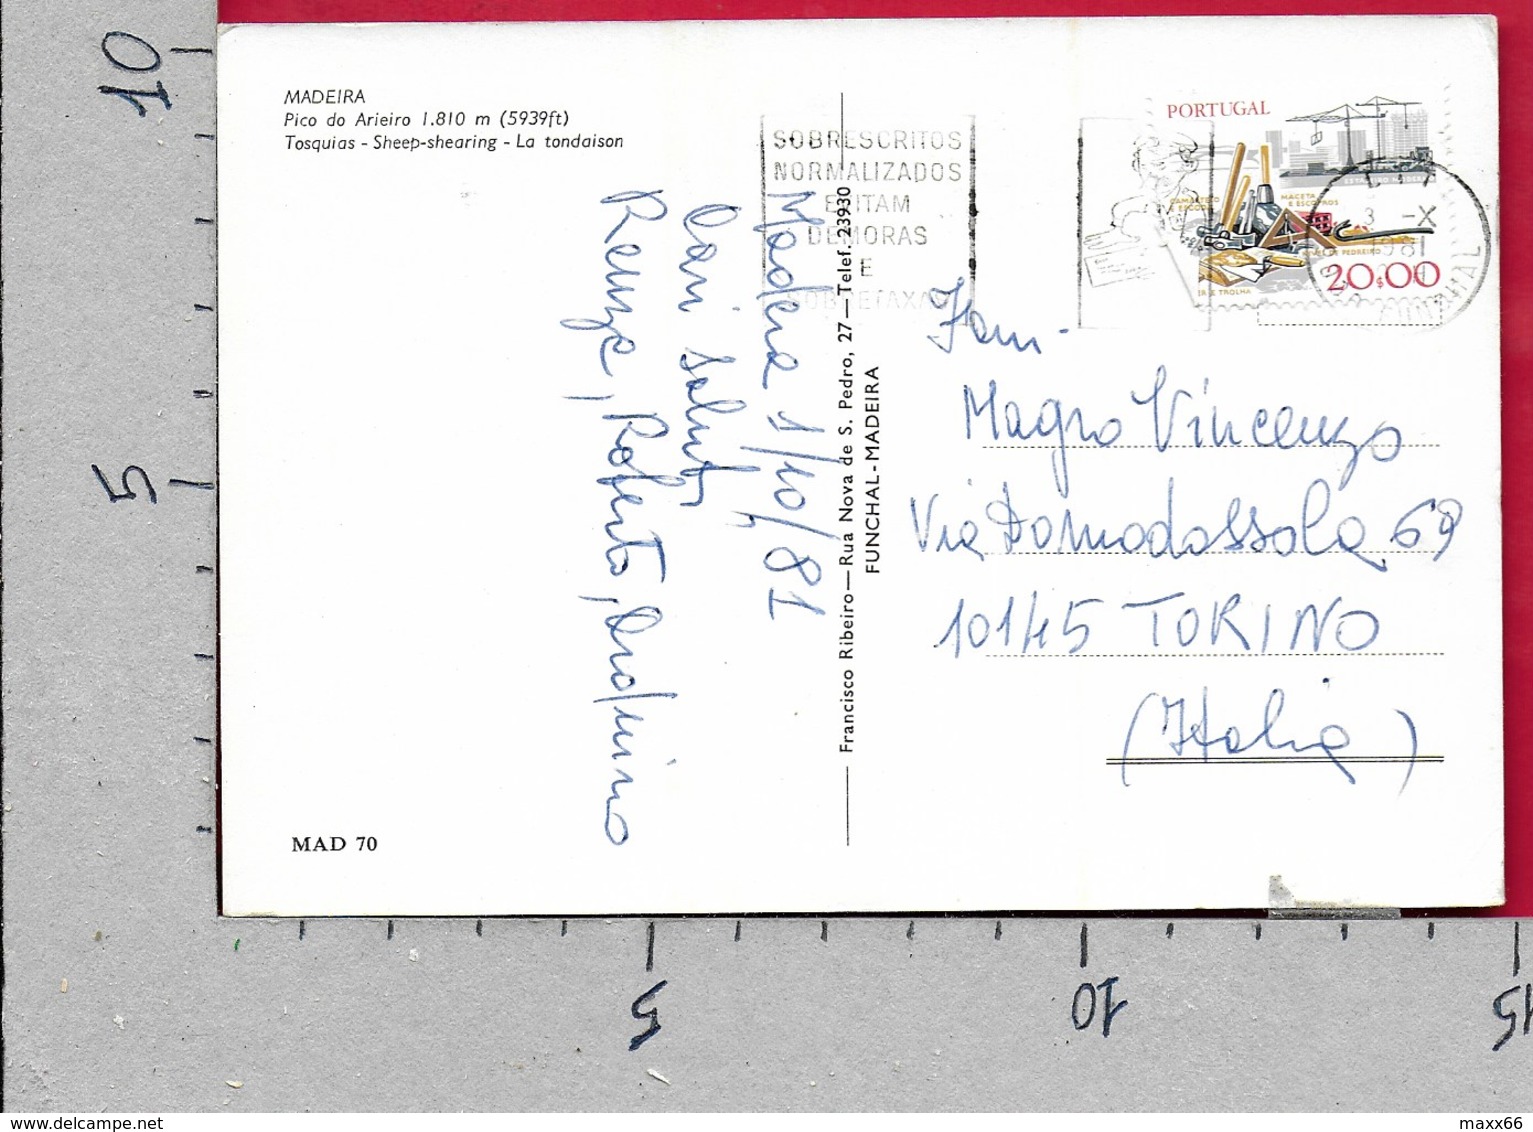 MADEIRA
Pico do Arieiro 1.810 m (5939ft)
Tosquias - Sheep-shearing - La tondaison
Madera 1/10/81
Cari saluti
Renza, Roberto,
MAD 70
Francisco Ribeiro—Rua Nova de S. Pedro, 27—Telef. 23930
FUNCHAL-MADEIRA
SOBRESCRITOS
NORMALIZADOS
EVITAM
DEMORAS
E
SOBRETAXAS
PORTUGAL
ESTALEIRO MODERNO
MACETA
E ESCOPROS
DE PEDREIRO
E TROLHA
20$00
3 -X
1981
FUNCHAL
Fam.
Magro Vincenzo
Via Domodossola 69
10145 TORINO
(Italia)
10
5
5
10
15
www.delcampe.net
maxx66